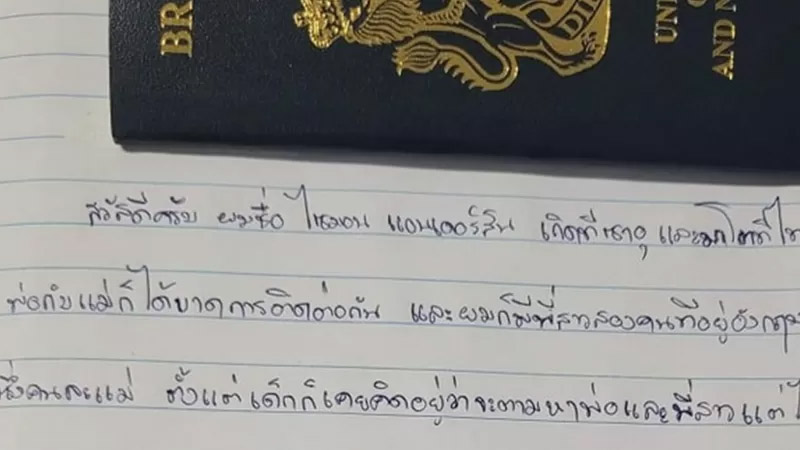 BR
UNI
AND N
สวัสดีครับ ผมชื่อ ไซมอน แอนเดอร์สัน เกิดที่ซาอุ และมาโตที่ไท
พ่อกับแม่ก็ได้ขาดการติดต่อกัน และผมก็มีพี่สาวสองคนที่อยู่อังกฤษ
ซึ่งคนละแม่ ตั้งแต่เด็กก็เคยคิดอยู่ว่าจะตามหาพ่อและพี่สาวแต่ไ